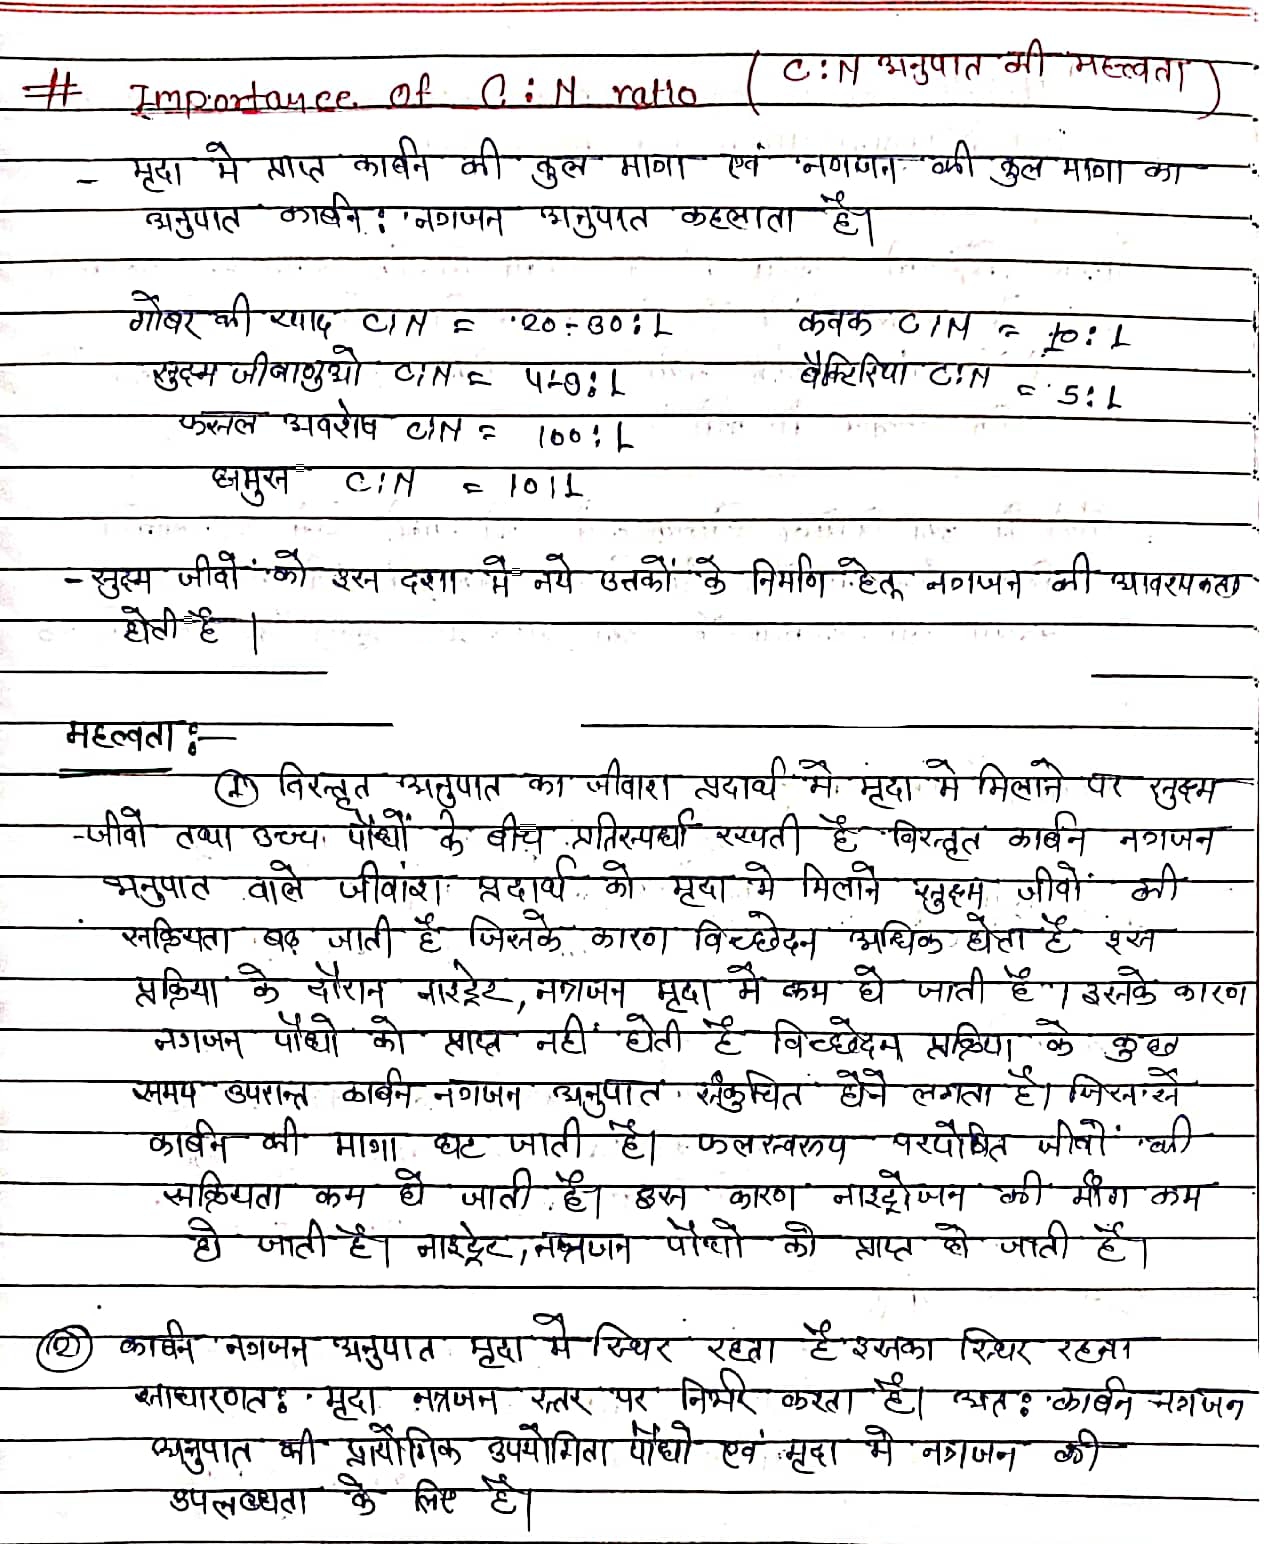 # Importance of C:N ratio (C:N अनुपात की महत्वता)
- मृदा मे प्राप्त कार्बन की कुल मात्रा एवं नत्रजन की कुल मात्रा का
अनुपात कार्बन : नत्रजन अनुपात कहलाता है।
गोबर की खाद C:N = 20-30:1 कवक C:N = 10:1
सुक्ष्म जीवाणुओ C:N = 4-9:1 बैक्टिरिया C:N = 5:1
फसल अवशेष C:N = 100:1
ह्यमुस C:N = 10:1
- सुक्ष्म जीवों को इस दशा मे नये उत्तकों के निर्माण हेतू नत्रजन की आवश्यकता
होती है।
महत्वता :-
① विस्तृत अनुपात का जीवाश प्रदार्थ मे मृदा मे मिलाने पर सुक्ष्म
-जीवो तथा उच्च पौधों के बीच प्रतिस्पर्धा रखती है विस्तृत कार्बन नत्रजन
अनुपात वाले जीवांश प्रदार्थ को मृदा मे मिलाने सुक्ष्म जीवों की
सक्रियता बढ़ जाती है जिसके कारण विच्छेदन अधिक होता है इस
प्रक्रिया के दौरान नाइट्रेट, नत्रजन मृदा मे कम हो जाती है। इसके कारण
नत्रजन पौधो को प्राप्त नहीं होती है विच्छेदन प्रक्रिया के कुछ
समय उपरान्त कार्बन नत्रजन अनुपात संकुचित होने लगता है। जिससे
कार्बन की मात्रा घट जाती है। फलस्वरूप परपोषित जीवों की
सक्रियता कम हो जाती है। इस कारण नाइट्रोजन की माँग कम
हो जाती है। नाइट्रेट, नत्रजन पौधो को प्राप्त हो जाती है।
② कार्बन नत्रजन अनुपात मृदा मे स्थिर रहता है इसका स्थिर रहना
साधारणतः मृदा नत्रजन स्तर पर निर्भर करता है। अतः कार्बन नत्रजन
अनुपात की प्रायोगिक उपयोगिता पौधो एवं मृदा मे नत्रजन की
उपलब्धता के लिए है।